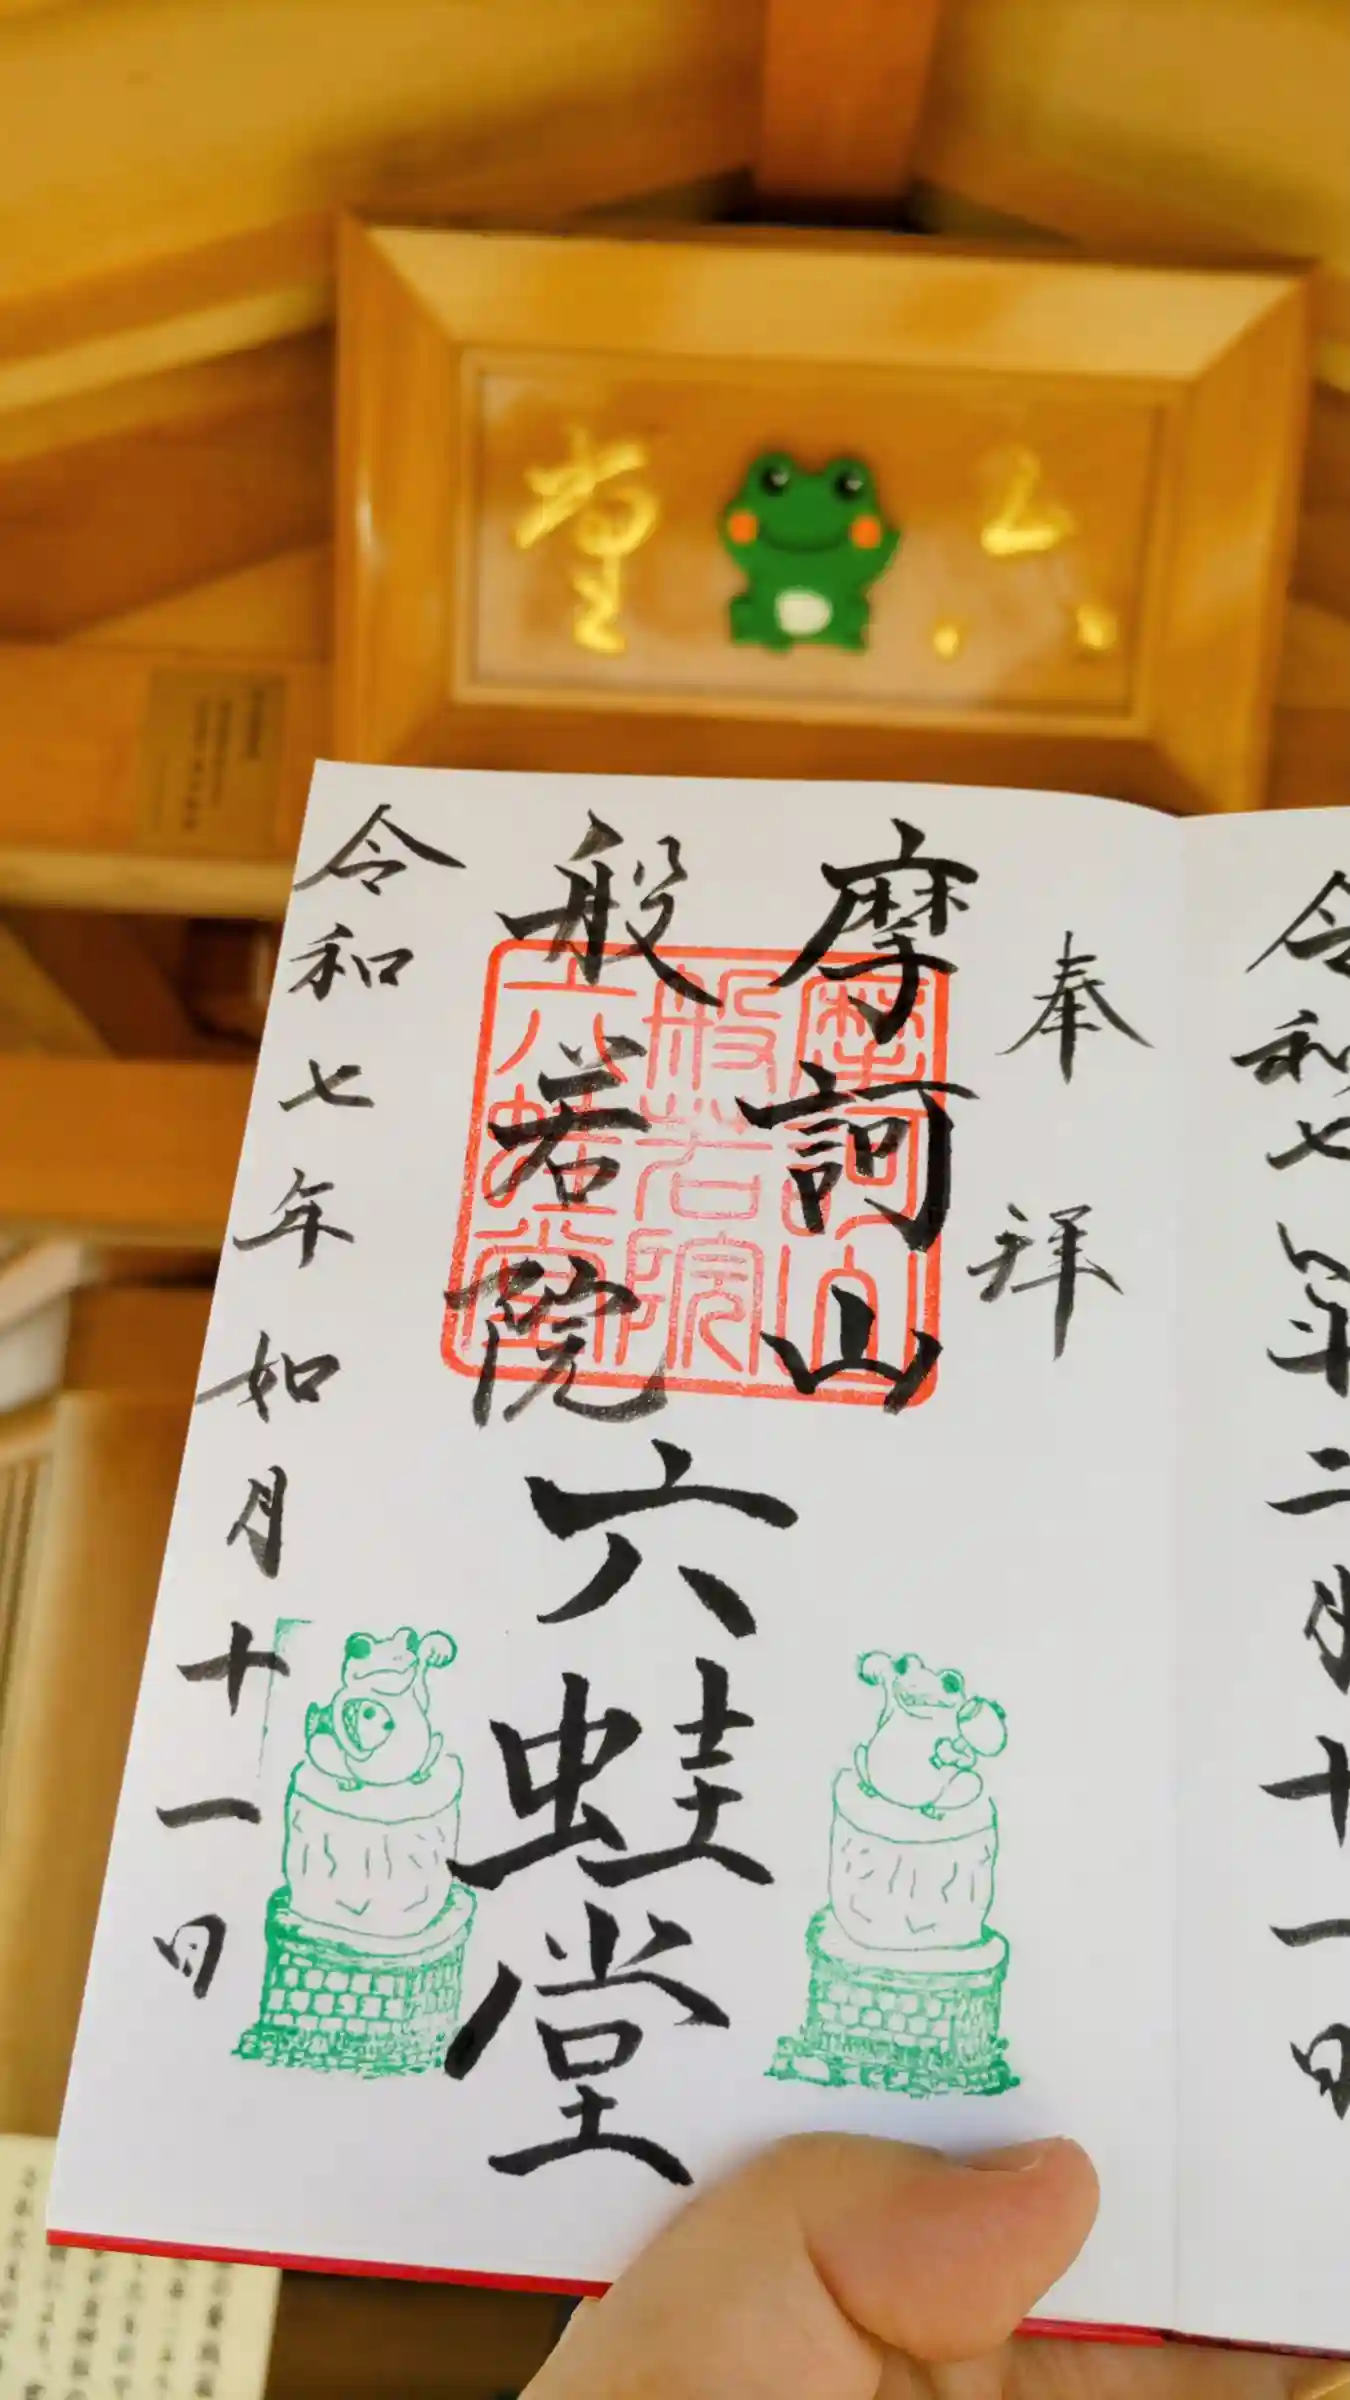 六 堂
奉拝
摩訶山
般若院
六蛙堂
令和七年如月十一日
摩訶山
般若院
六蛙堂
令和七年二月十一日